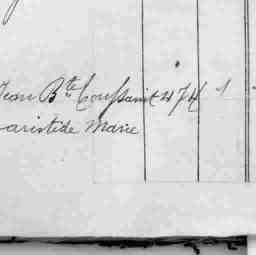 Jean Bte Toussaint 474 1
aristide Marie